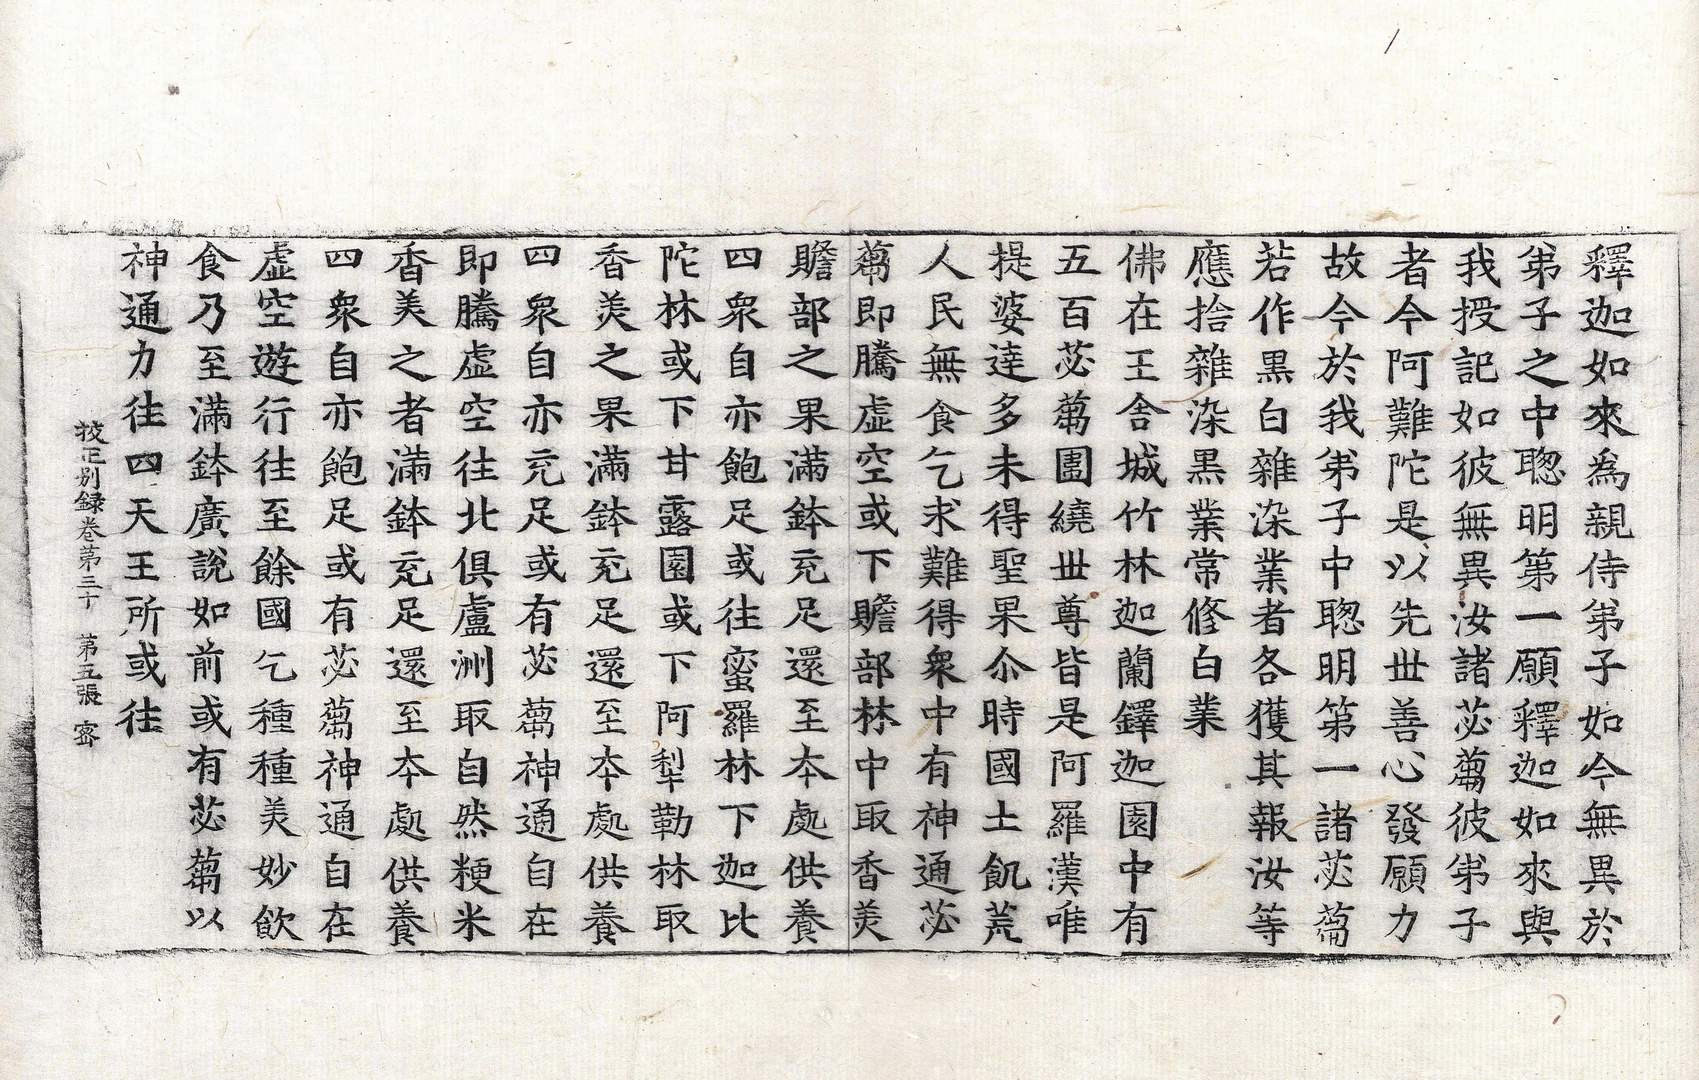 釋迦如來爲親侍弟子如今無異於
弟子之中聦明第一願釋迦如來與
我授記如彼無異汝諸苾蒭彼弟子
者今阿難陀是以先世善心發願力
故今於我弟子中聦明第一諸苾蒭
若作黒白雜染業者各獲其報汝等
應捨雜染黒業常修白業
佛在王舍城竹林迦蘭鐸迦園中有
五百苾蒭圍繞世尊皆是阿羅漢唯
提婆達多未得聖果尒時國土飢荒
人民無食乞求難得衆中有神通苾
蒭即騰虛空或下贍部林中取香美
贍部之果滿鉢充足還至本處供養
四衆自亦飽足或往蜜羅林下迦比
陀林或下甘露園或下阿犁勒林取
香美之果滿鉢充足還至本處供養
四衆自亦充足或有苾蒭神通自在
即騰虛空往北俱盧洲取自然粳米
香美之者滿鉢充足還至本處供養
四衆自亦飽足或有苾蒭神通自在
虛空遊行往至餘國乞種種美妙飲
食乃至滿鉢廣說如前或有苾蒭以
神通力往四天王所或往
挍正別録卷第三十　第五張　宻